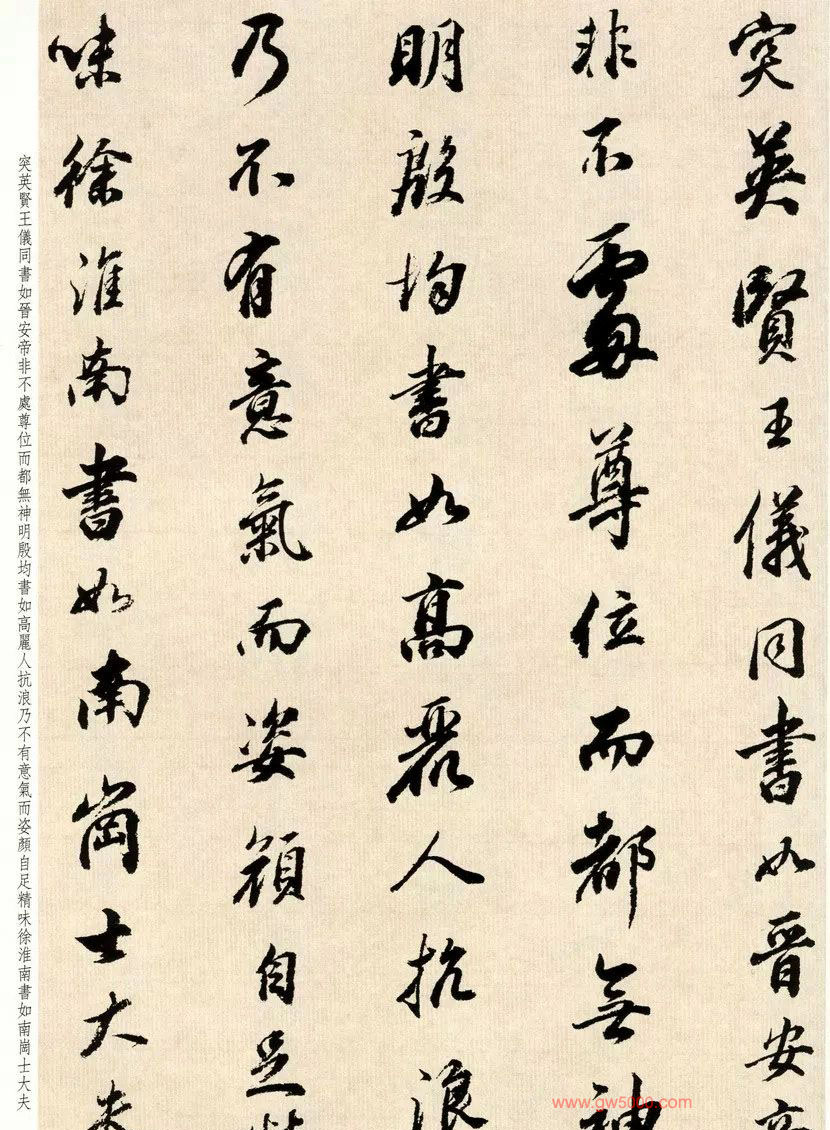 突英賢王儀同書如晉安帝
非不處尊位而都無神
明殷均書如高麗人抗浪
乃不有意氣而姿顏自足精
味徐淮南書如南崗士大夫
突英賢王儀同書如晉安帝非不處尊位而都無神明殷均書如高麗人抗浪乃不有意氣而姿顏自足精味徐淮南書如南崗士大夫
www.gw5000.com